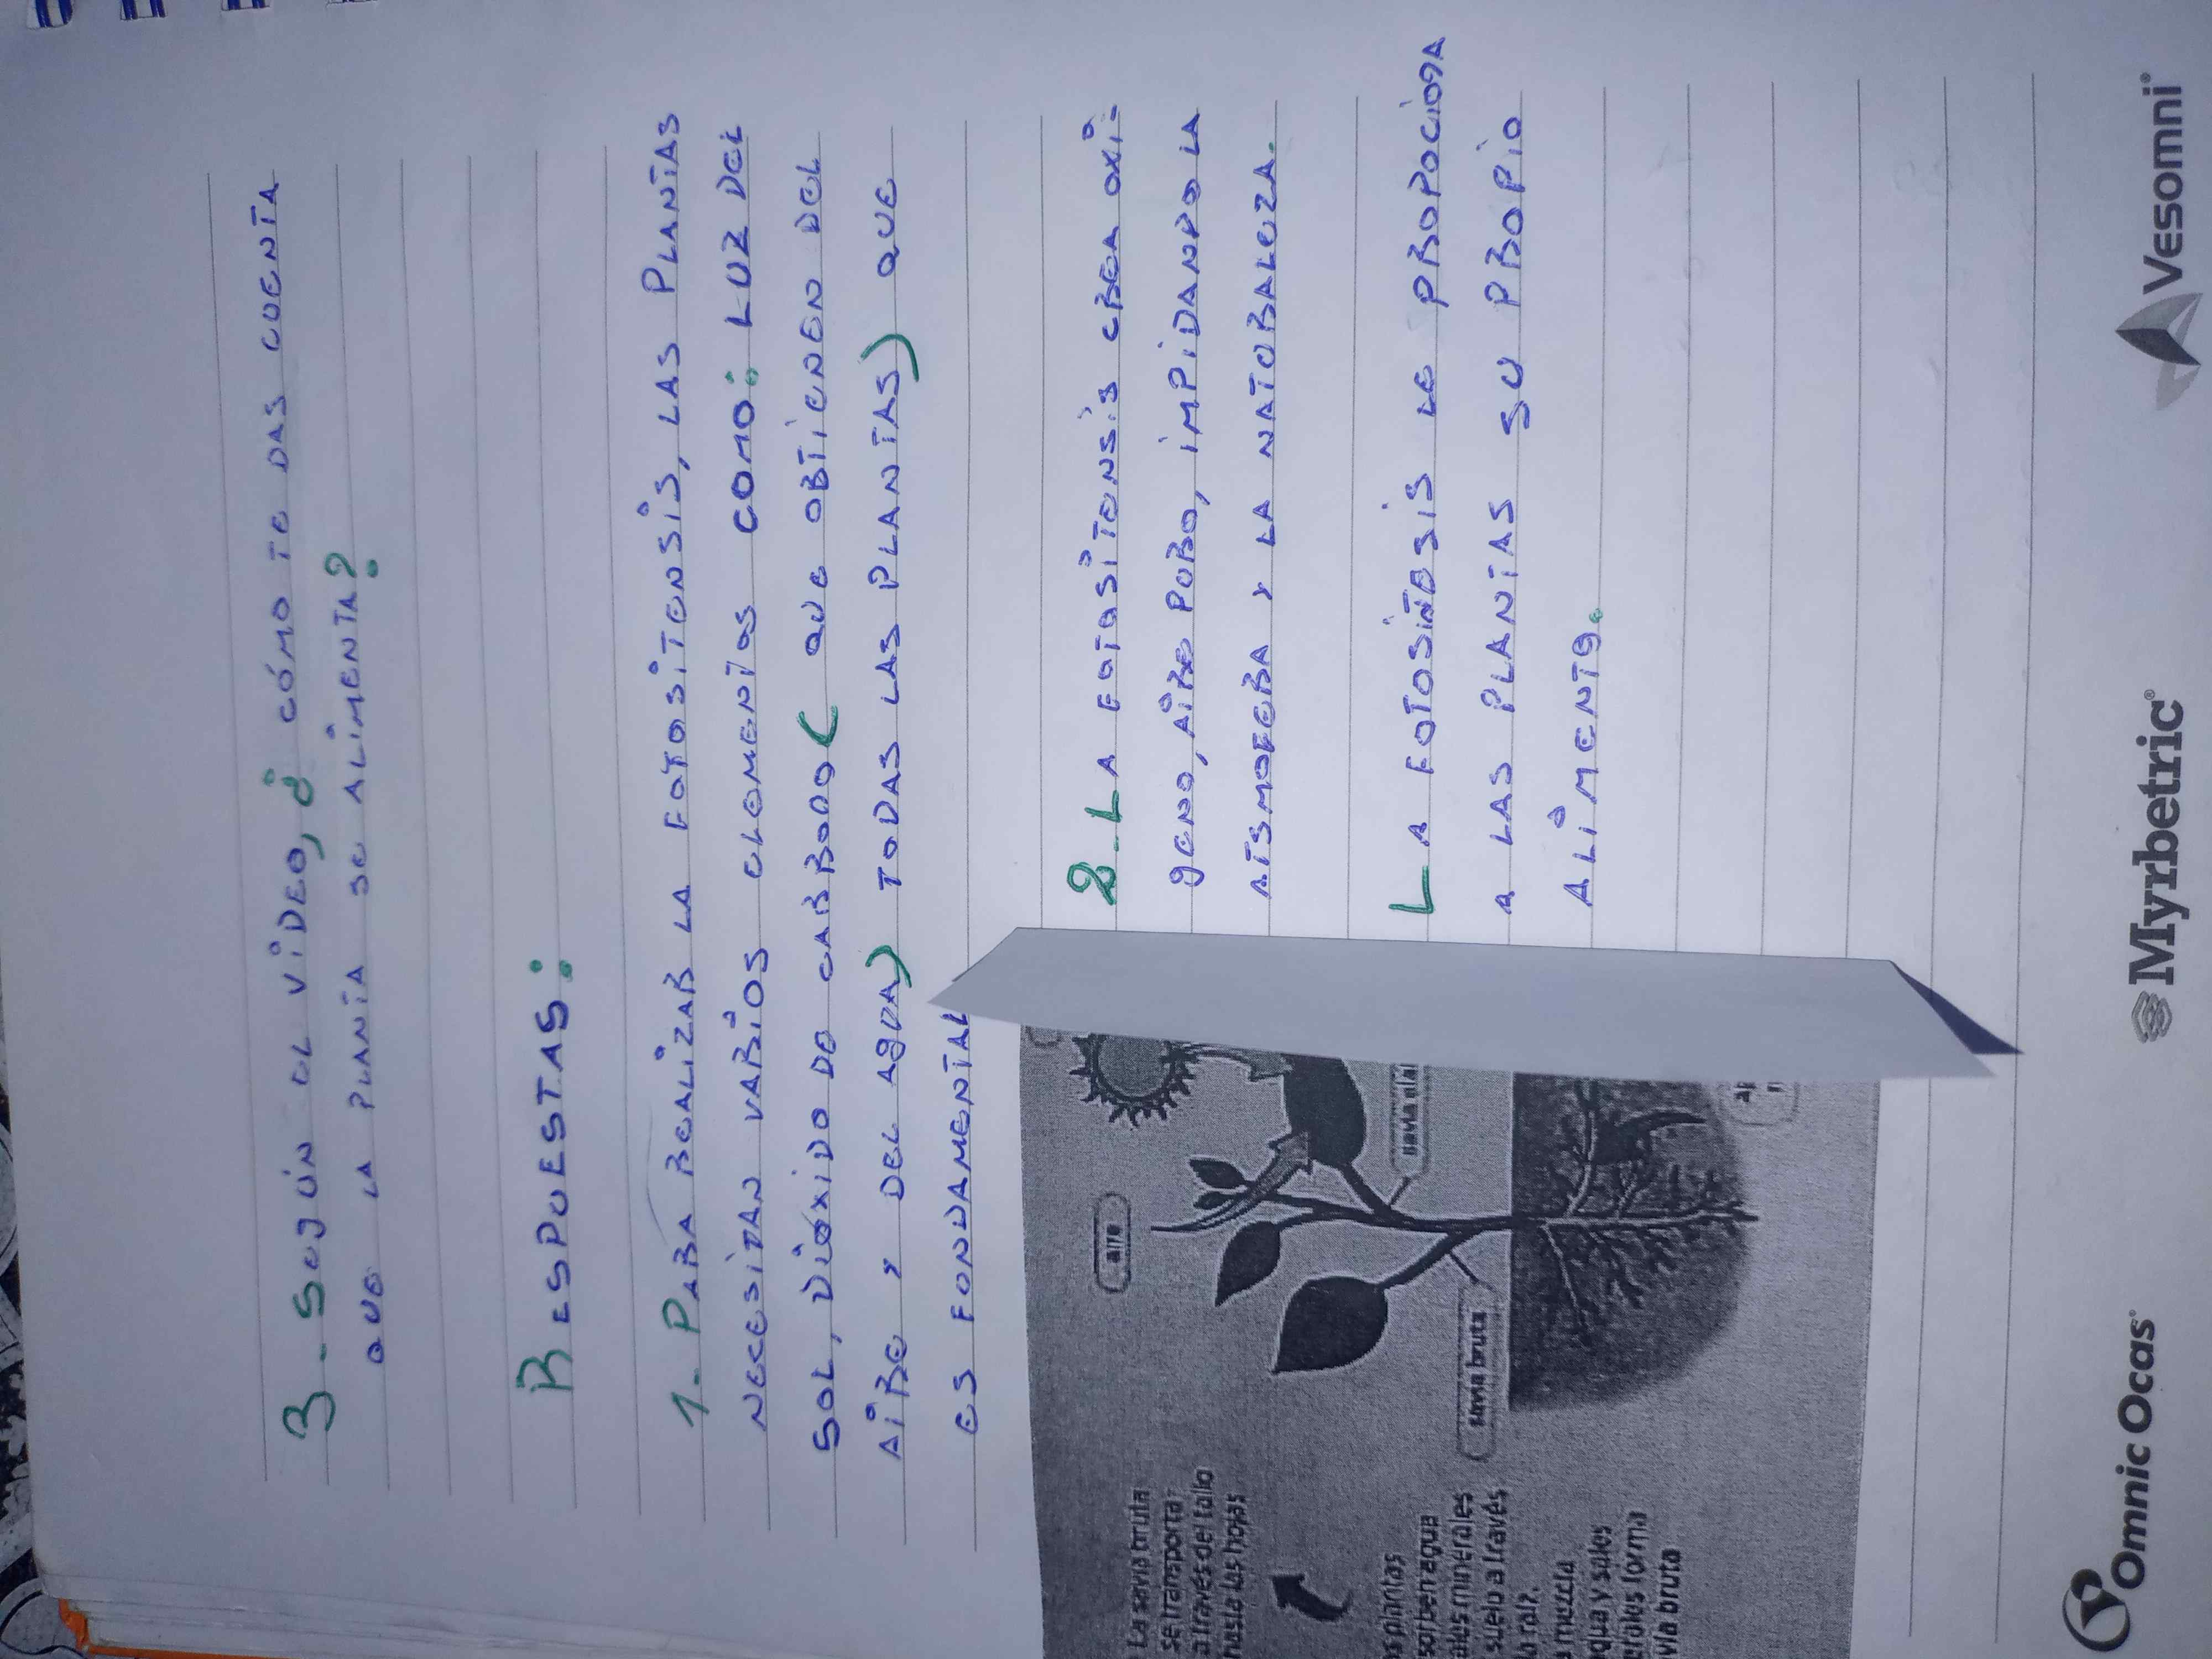 3-SEGÚN EL VIDEO, ¿CÓMO TE DAS CUENTA
QUE LA PLANTA SE ALIMENTA?
RESPUESTAS:
1-PARA REALIZAR LA FOTOSITENSIS, LAS PLANTAS
NECESITAN VARIOS ELEMENTOS COMO: LUZ DEL
SOL, DIÓXIDO DE CARBONO( QUE OBTIENEN DEL
AIRE Y DEL AGUA) TODAS LAS PLANTAS) QUE
ES FUNDAMENTAL
2-LA FOTOSITENSIS CREA OXI-
GENO, AIRE PURO, IMPIDANDO LA
ATSMOFERA Y LA NATURALEZA.
LA FOTOSINTESIS LE PROPOCIONA
A LAS PLANTAS SU PROPIO
ALIMENTO.
La savia bruta
se transporta
a través del tallo
hasta las hojas
aire
savia bruta
plantas
agua
minerales
suelo a través
raíz.
mezcla
agua y sales
forma
bruta
savia
Omnic Ocas®
Myrbetric®
Vesomni®